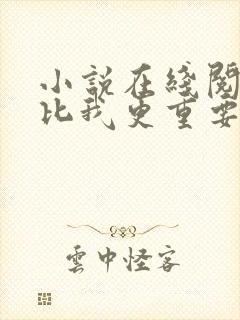 小説在綫閱
比我更重要
雲中怪客